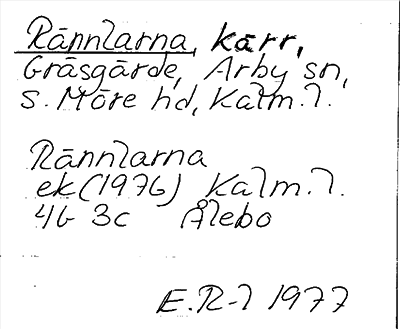 Rännlarna, kärr,
Gräsgärde, Arby sn,
S. Möre hd, Kalm. l.
Rännlarna
ek (1976) Kalm. l.
4G 3c Ålebo
E.R-l 1977